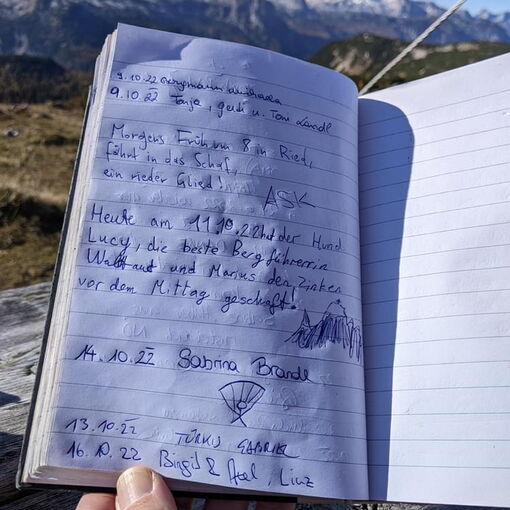 9.10.22
9.10.22 Tanja, u. Tom
Morgens Früh um 8 in Ried,
fährt in das Schaf,
ein rieder Glied!
ASK
Heute am 11.10.22 hat der Hund
Lucy, die beste Bergführerin
Waltraut und Marius den Zinken
vor dem Mittag geschaft!
14.10.22 Sabrina Brandl
13.10.22
16.10.22 Birgit & Axel, Linz